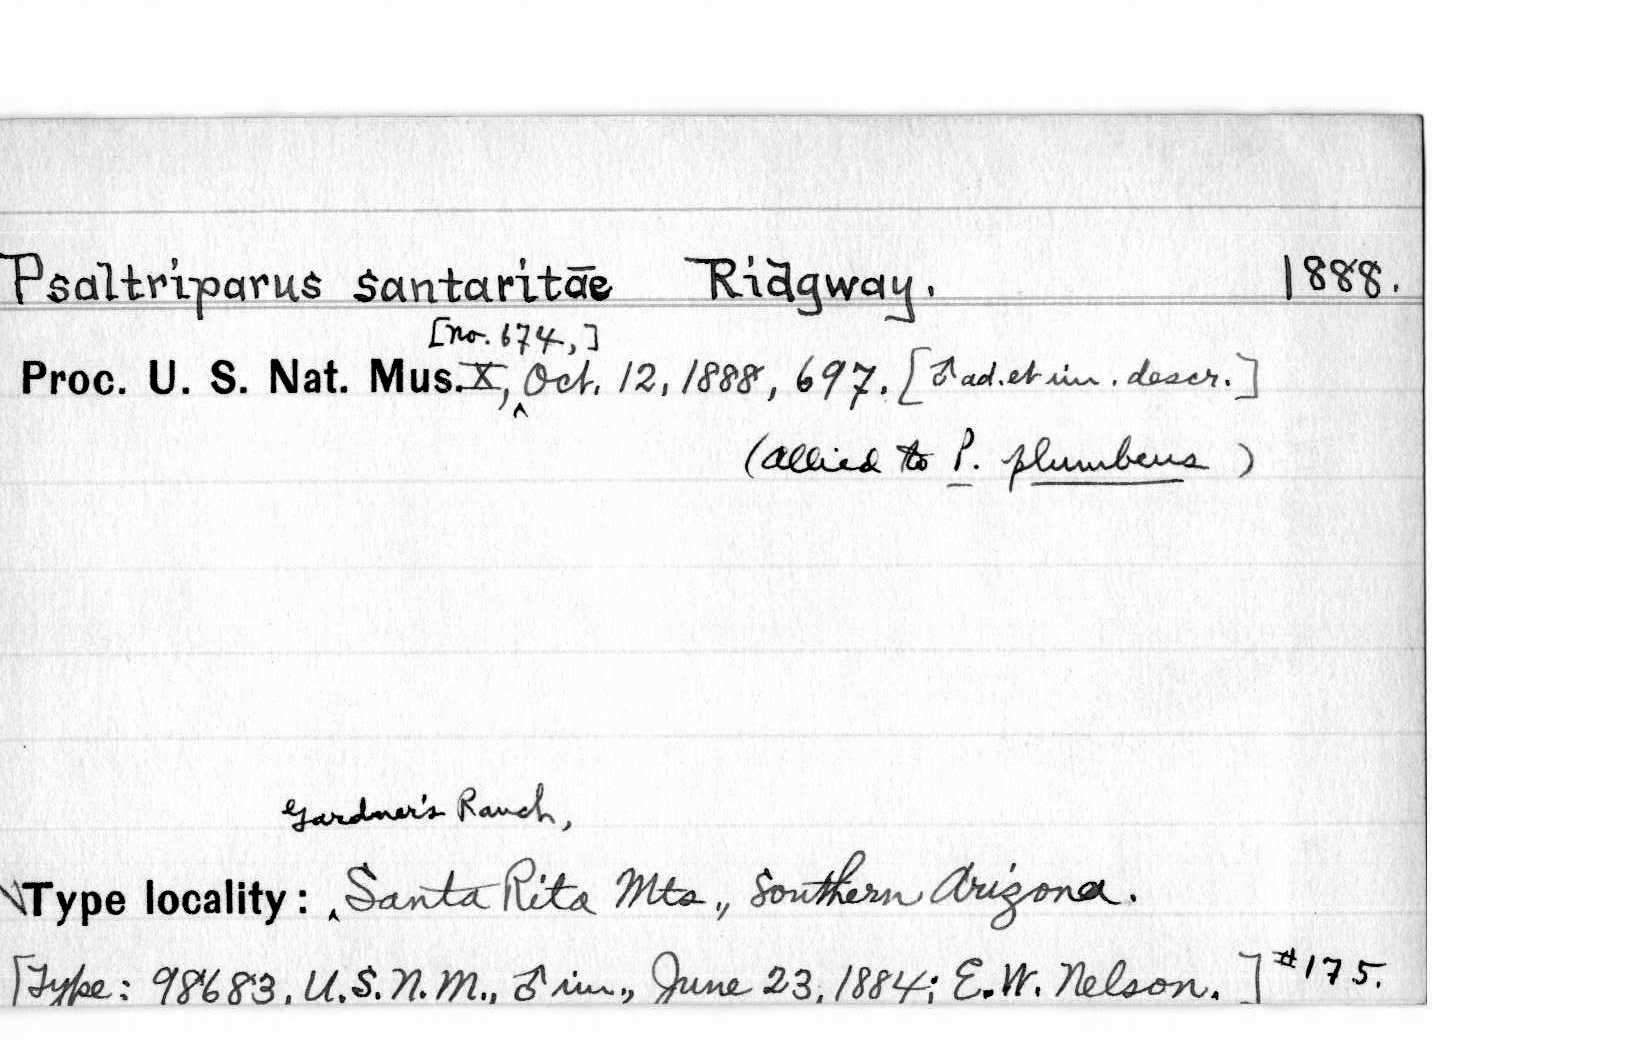 Psaltriparus santaritae Ridgway. 1888.
[no. 674,]
Proc. U. S. Nat. Mus. X, ‸ Oct. 12, 1888, 697. [♂ ad. et im. descr.]
(allied to P. plumbeus)
Gardner's Ranch,
Type locality: ‸ Santa Rita Mts., Southern Arizona.
[Type: 98683, U.S.N.M., ♂ im., June 23, 1884; E.W. Nelson.] #175.